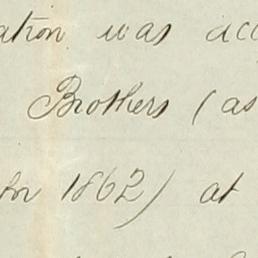 ation was acc
Brothers (as
in 1862) at